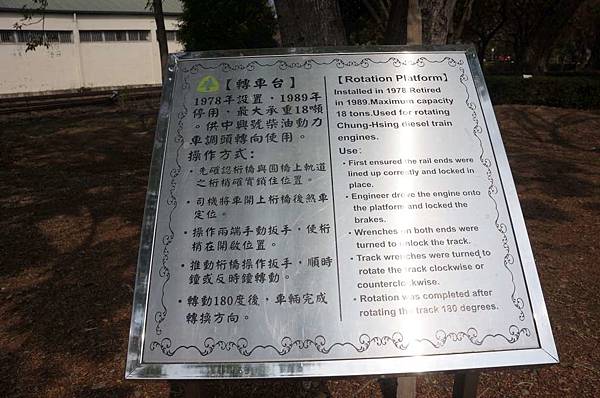 【轉車台】
1978年設置，1989年
停用、最大承重18噸
。供中興號柴油動力
車調頭轉向使用。
操作方式：
・先確認桁橋與圓橋上軌道
之桁梢確實鎖住位置。
・司機將車開上桁橋後煞車
定位。
・操作兩端手動扳手，使桁
梢在開啟位置。
・推動桁橋操作扳手，順時
鐘或反時鐘轉動。
・轉動180度後，車輛完成
轉換方向。
【Rotation Platform】
Installed in 1978 Retired
in 1989.Maximum capacity
18 tons.Used for rotating
Chung-Hsing diesel train
engines.
Use:
• First ensured the rail ends were
lined up correctly and locked in
place.
• Engineer drove the engine onto
the platform and locked the
brakes.
• Wrenches on both ends were
turned to unlock the track.
• Track wrenches were turned to
rotate the track clockwise or
counterclockwise.
• Rotation was completed after
rotating the track 180 degrees.